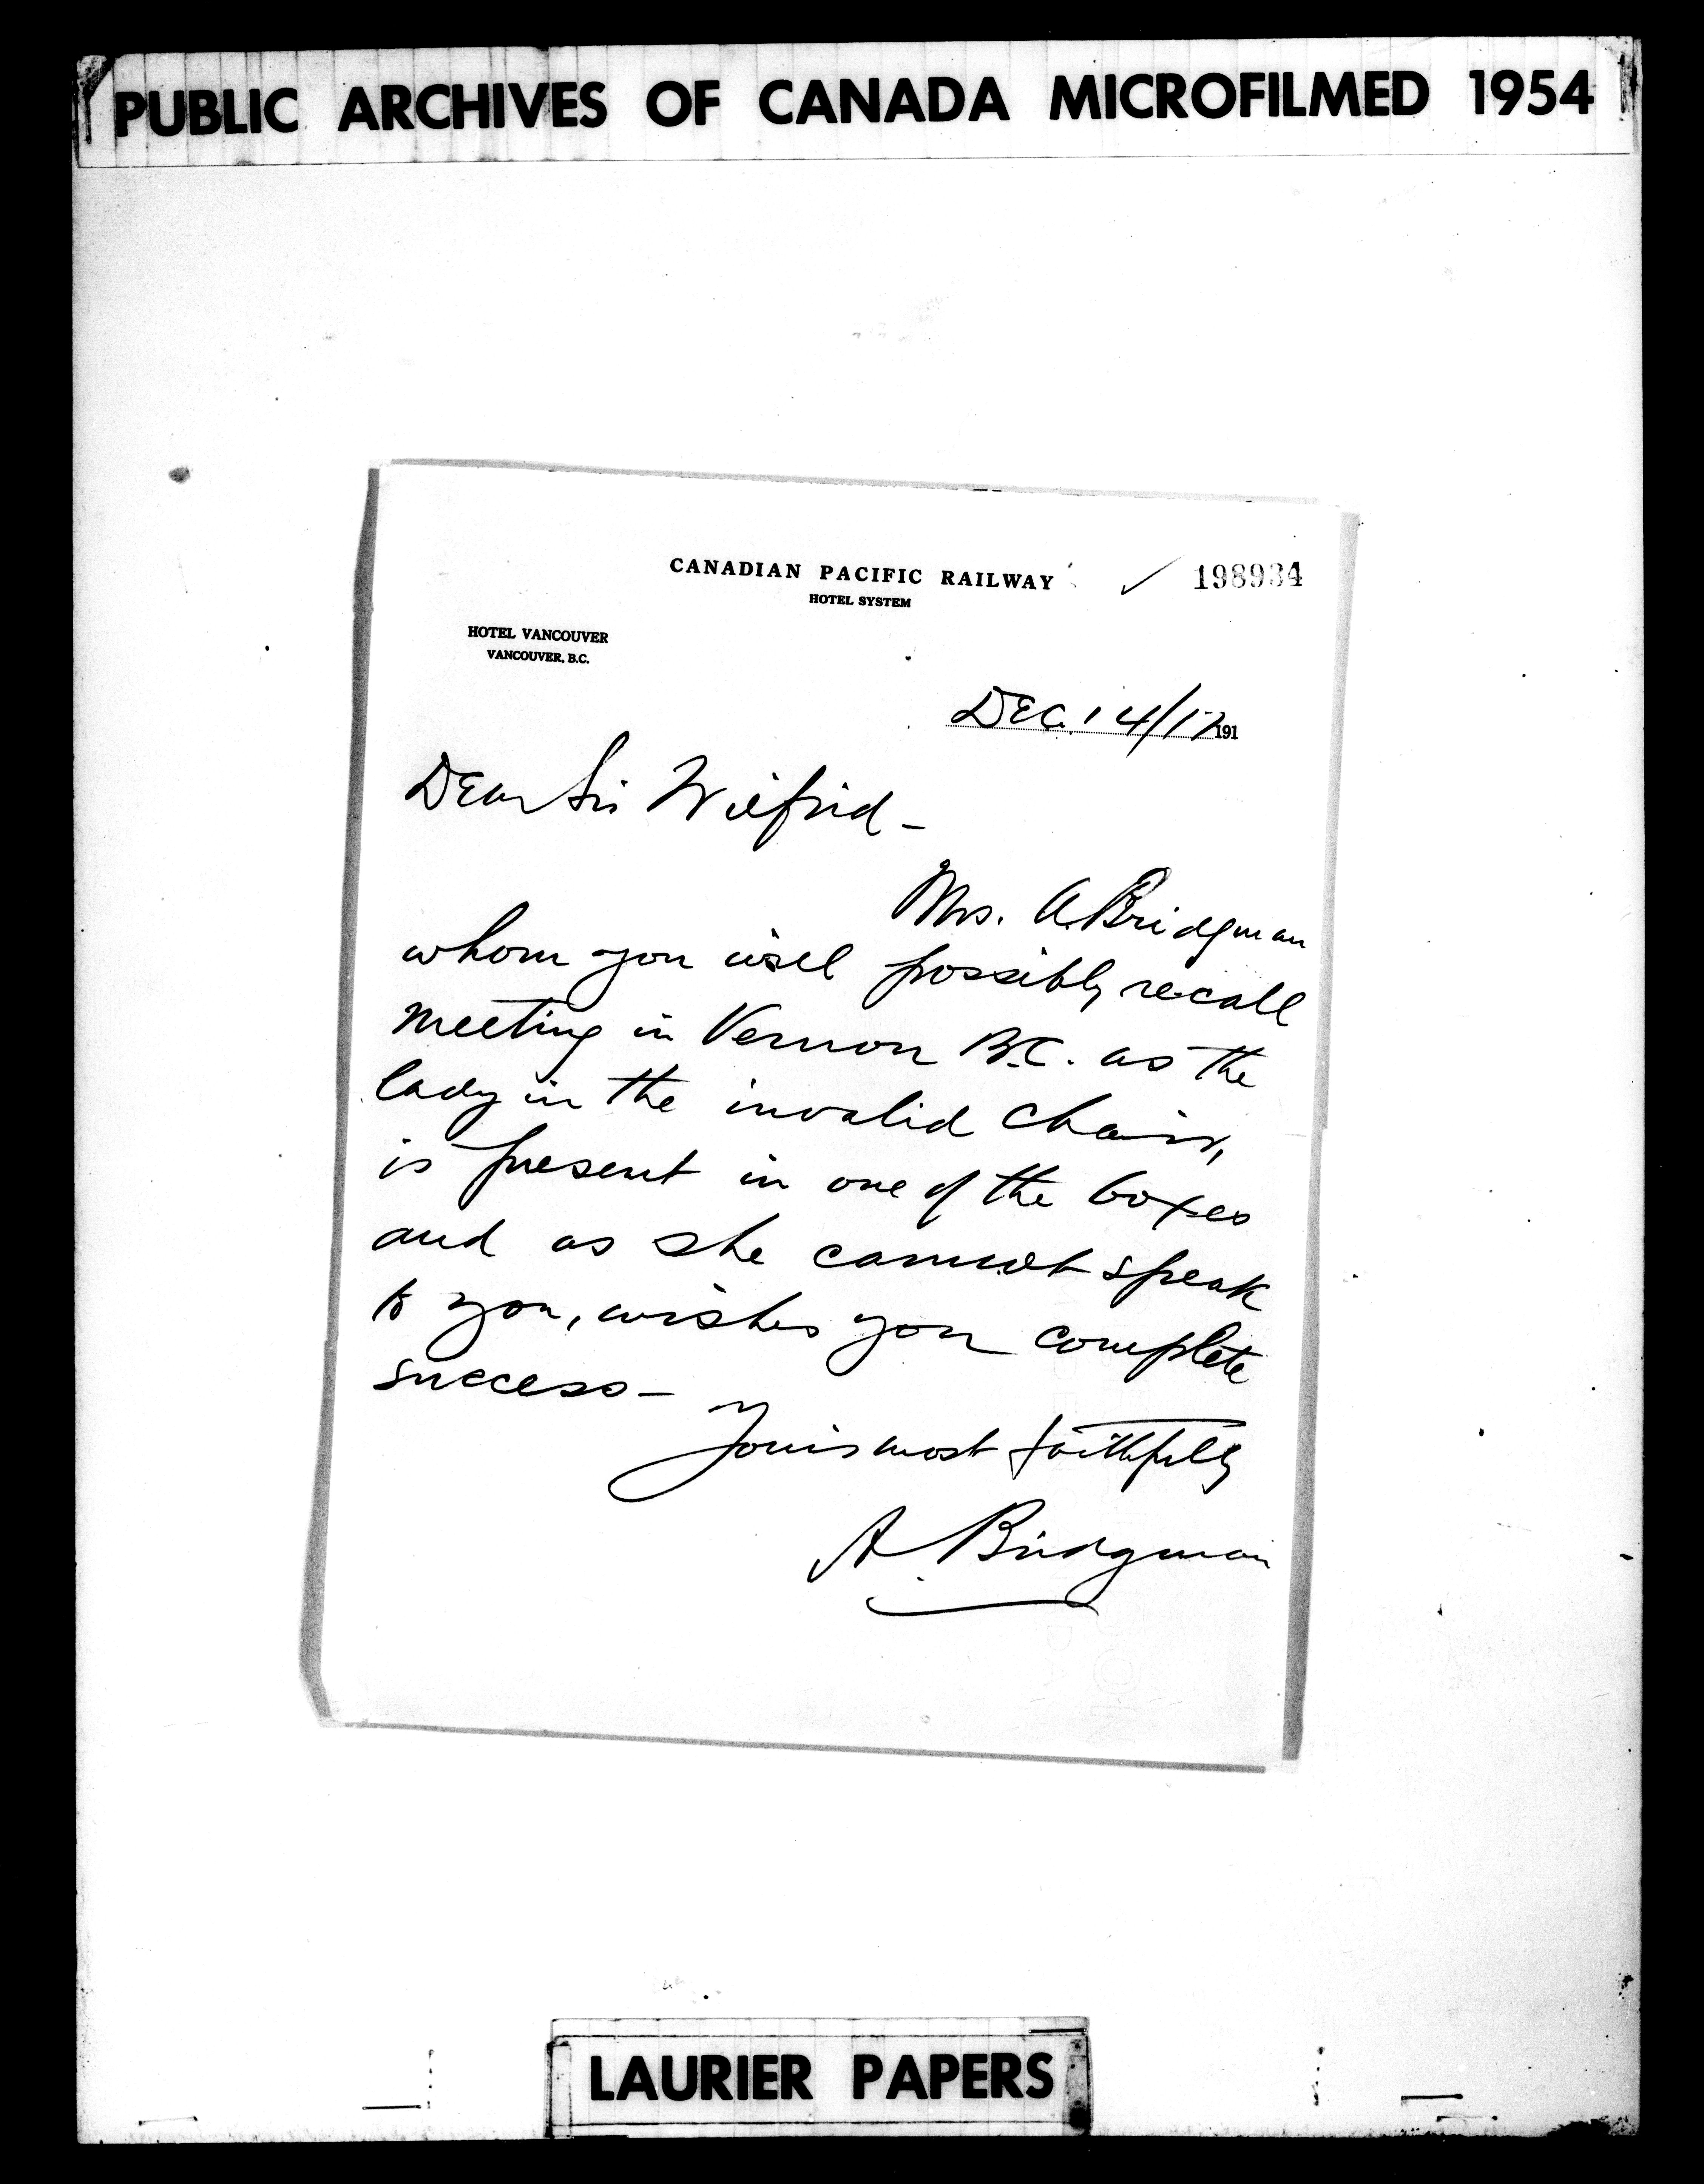 PUBLIC ARCHIVES OF CANADA MICROFILMED 1954
CANADIAN PACIFIC RAILWAY ✓ 198934
HOTEL SYSTEM
HOTEL VANCOUVER
VANCOUVER, B.C.
Dec. 14/17 191
Dear Sir Wilfrid -
Mrs. A. Bridgman
whom you will possibly recall
meeting in Vernon B.C. as the
lady in the invalid chair,
is present in one of the boxes
and as she cannot speak
to you, wishes you complete
success -
Yours most faithfully
A. Bridgman
LAURIER PAPERS